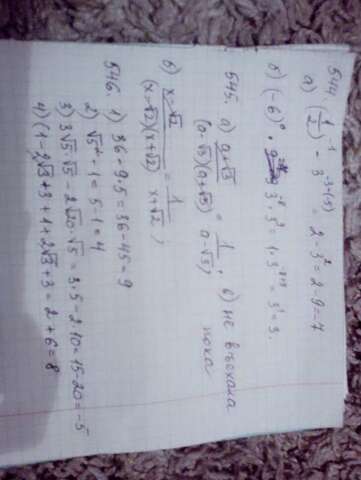 544.
а) (1/2)⁻¹ - 3⁻³⁻⁽⁻⁵⁾ = 2 - 3² = 2 - 9 = -7
б) (-6)⁰ · 3⁻¹ · 3² = 1 · 3⁻¹⁺² = 3¹ = 3.
545. а) a+√3 / (a-√3)(a+√3) = 1 / a-√3 ; в) не въехала
пока
б) x-√2 / (x-√2)(x+√2) = 1 / x+√2 ;
546. 1) 36 - 9·5 = 36-45 = 9
2) √5² - 1 = 5-1 = 4
3) 3√5·√5 - 2√20·√5 = 3·5 - 2·10 = 15-20 = -5
4) (1-2√3+3+1+2√3+3 = 2+6 = 8